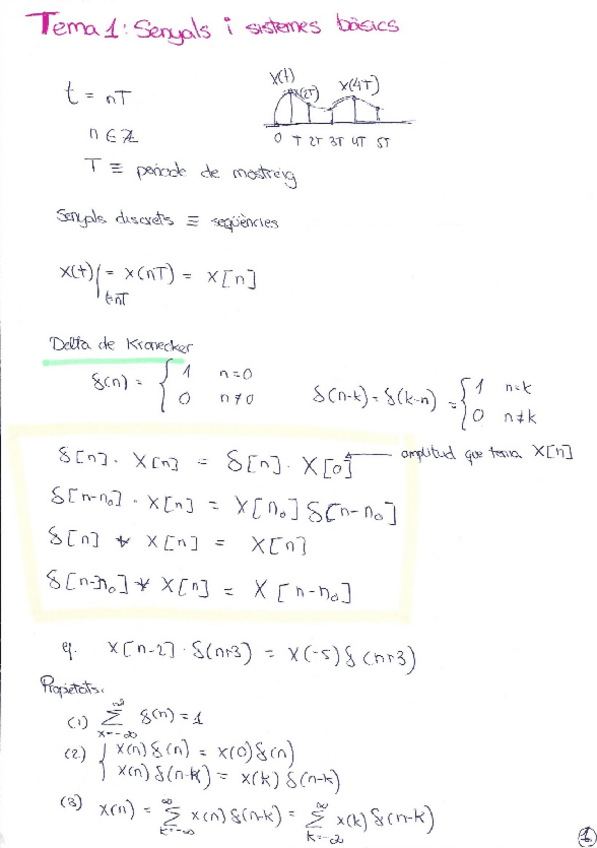 Tema 1: Senyals i sistemes bàsics
t = nT
n ∈ ℤ
T ≡ període de mostreig
x(t)
x(2T)
x(4T)
0 T 2T 3T 4T 5T
Senyals discrets ≡ seqüències
x(t)|t=nT = x(nT) = x[n]
Delta de Kronecker
δ(n) = { 1 n=0
0 n≠0
δ(n-k) = δ(k-n) = { 1 n=k
0 n≠k
δ[n] · x[n] = δ[n] · x[0] ← amplitud que tenia x[n]
δ[n-n₀] · x[n] = x[n₀] δ[n-n₀]
δ[n] * x[n] = x[n]
δ[n-n₀] * x[n] = x[n-n₀]
ej. x[n-2] · δ(n+3) = x(-5) δ(n+3)
Propietats.
(1) ∑_{x=-∞}^{∞} δ(n) = 1
(2) { x(n) δ(n) = x(0) δ(n)
x(n) δ(n-k) = x(k) δ(n-k)
(3) x(n) = ∑_{k=-∞}^{∞} x(n) δ(n-k) = ∑_{k=-∞}^{∞} x(k) δ(n-k)
1